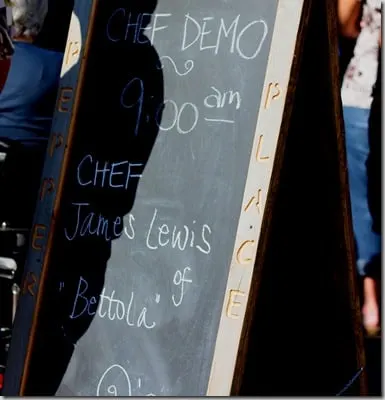 CHEF DEMO
9:00 am
CHEF
James Lewis
of
"Bettola"
PEPPER
PLACE